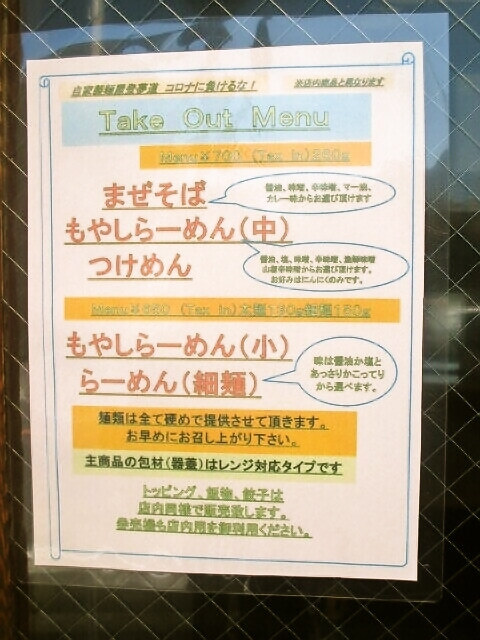 自家製麺屋登夢道 コロナに負けるな！
※店内商品と異なります
Take Out Menu
Menu¥700 (Tax in)250g
まぜそば
醤油、味噌、辛味噌、マー油、
カレー味からお選び頂けます
もやしらーめん(中)
つけめん
醤油、塩、味噌、辛味噌、魚郎味噌
山椒辛味噌からお選び頂けます。
お好みはにんにくのみです。
Menu¥650 (Tax in)太麺160g細麺150g
もやしらーめん(小)
らーめん(細麺)
味は醤油か塩と
あっさりかこってり
から選べます。
麺類は全て硬めで提供させて頂きます。
お早めにお召し上がり下さい。
主商品の包材(器蓋)はレンジ対応タイプです
トッピング、飯物、餃子は
店内同様で販売致します。
券売機も店内用を御利用ください。